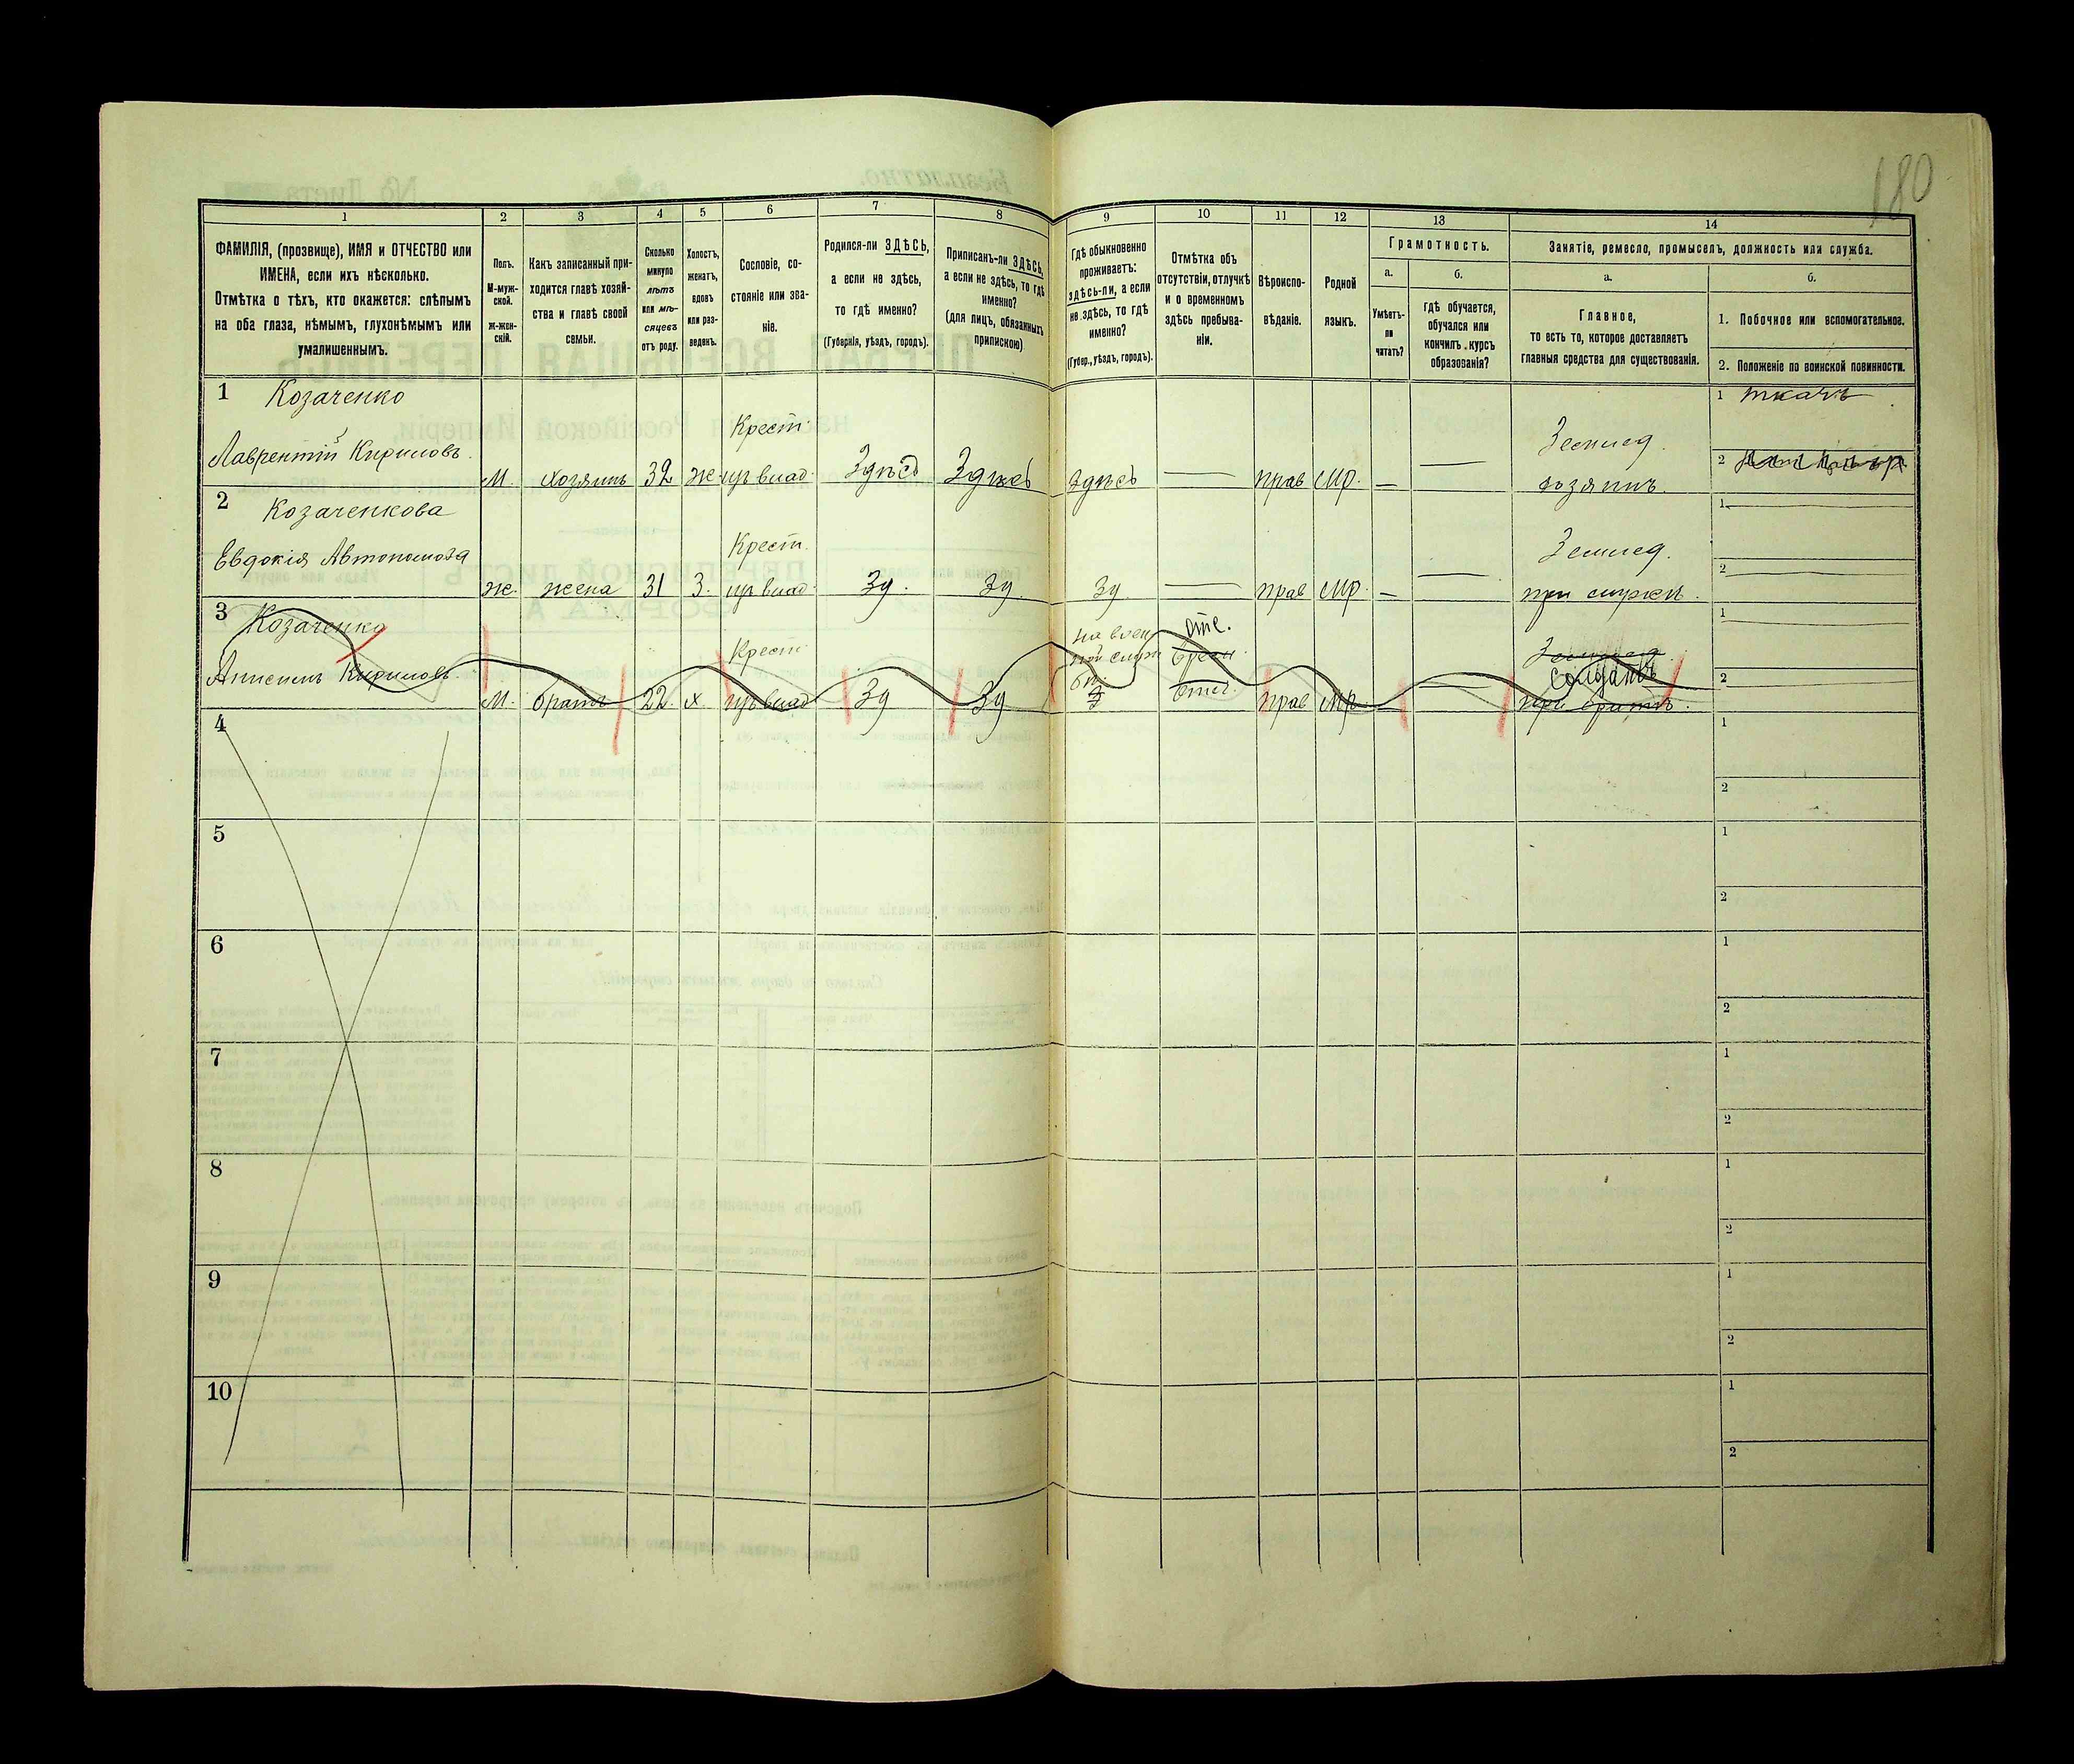 180
1
2
3
4
5
6
7
8
9
10
11
12
13
14
ФАМИЛІЯ, (прозвище), ИМЯ и ОТЧЕСТВО или
ИМЕНА, если ихъ нѣсколько.
Отмѣтка о тѣхъ, кто окажется: слѣпымъ
на оба глаза, нѣмымъ, глухонѣмымъ или
умалишеннымъ.
Полъ.
М-муж-
ской.
ж-жен-
скій.
Какъ записанный при-
ходится главѣ хозяй-
ства и главѣ своей
семьи.
Сколько
минуло
лѣтъ
или мѣ-
сяцевъ
отъ роду.
Холостъ,
женатъ,
вдовъ
или раз-
веденъ.
Сословіе, со-
стояніе или зва-
ніе.
Родился-ли ЗДѢСЬ,
а если не здѣсь,
то гдѣ именно?
(Губернія, уѣздъ, городъ).
Приписанъ-ли ЗДѢСЬ,
а если не здѣсь, то гдѣ
именно?
(для лицъ, обязанныхъ
припискою)
Гдѣ обыкновенно
проживаетъ:
здѣсь-ли, а если
не здѣсь, то гдѣ
именно?
(Губер., уѣздъ, городъ).
Отмѣтка объ
отсутствіи, отлучкѣ
и о временномъ
здѣсь пребыва-
ніи.
Вѣроиспо-
вѣданіе.
Родной
языкъ.
Грамотность.
а.
б.
Умѣетъ-
ли
читать?
гдѣ обучается,
обучался или
кончилъ курсъ
образованія?
Занятіе, ремесло, промыселъ, должность или служба.
а.
б.
Главное,
то есть то, которое доставляетъ
главныя средства для существованія.
1. Побочное или вспомогательное.
2. Положеніе по воинской повинности.
1 Козаченко
Лаврентій Кириловъ.
М. хозяинъ 32 ж.
Крест.
Здѣсь Здѣсь Здѣсь — прав мр. — —
Землед.
хозяинъ.
1 ткачъ
2
2 Козаченкова
Евдокія Автономова
ж. жена 31 З.
Крест.
Зд. Зд Зд. — прав мр. — —
Землед.
при мужѣ.
1
2
3 Козаченко
Кириловъ.
М. братъ 22 х.
Крест
Зд Зд
на воен
ной служ
Отс.
прав мр. — —
Землед.
Солдатъ
при братѣ.
1
2
4
1
2
5
1
2
6
1
2
7
1
2
8
1
2
9
1
2
10
1
2